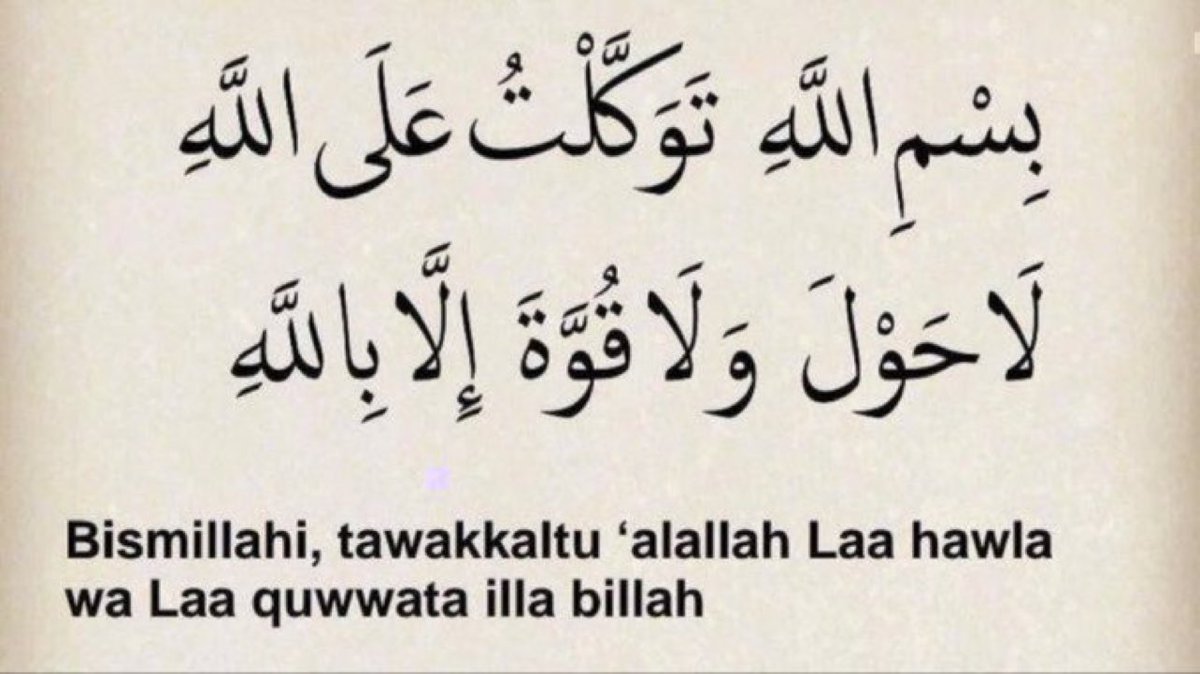 بِسْمِ اللَّهِ تَوَكَّلْتُ عَلَى اللَّهِ
لَا حَوْلَ وَلَا قُوَّةَ إِلَّا بِاللَّهِ
Bismillahi, tawakkaltu ‘alallah Laa hawla
wa Laa quwwata illa billah